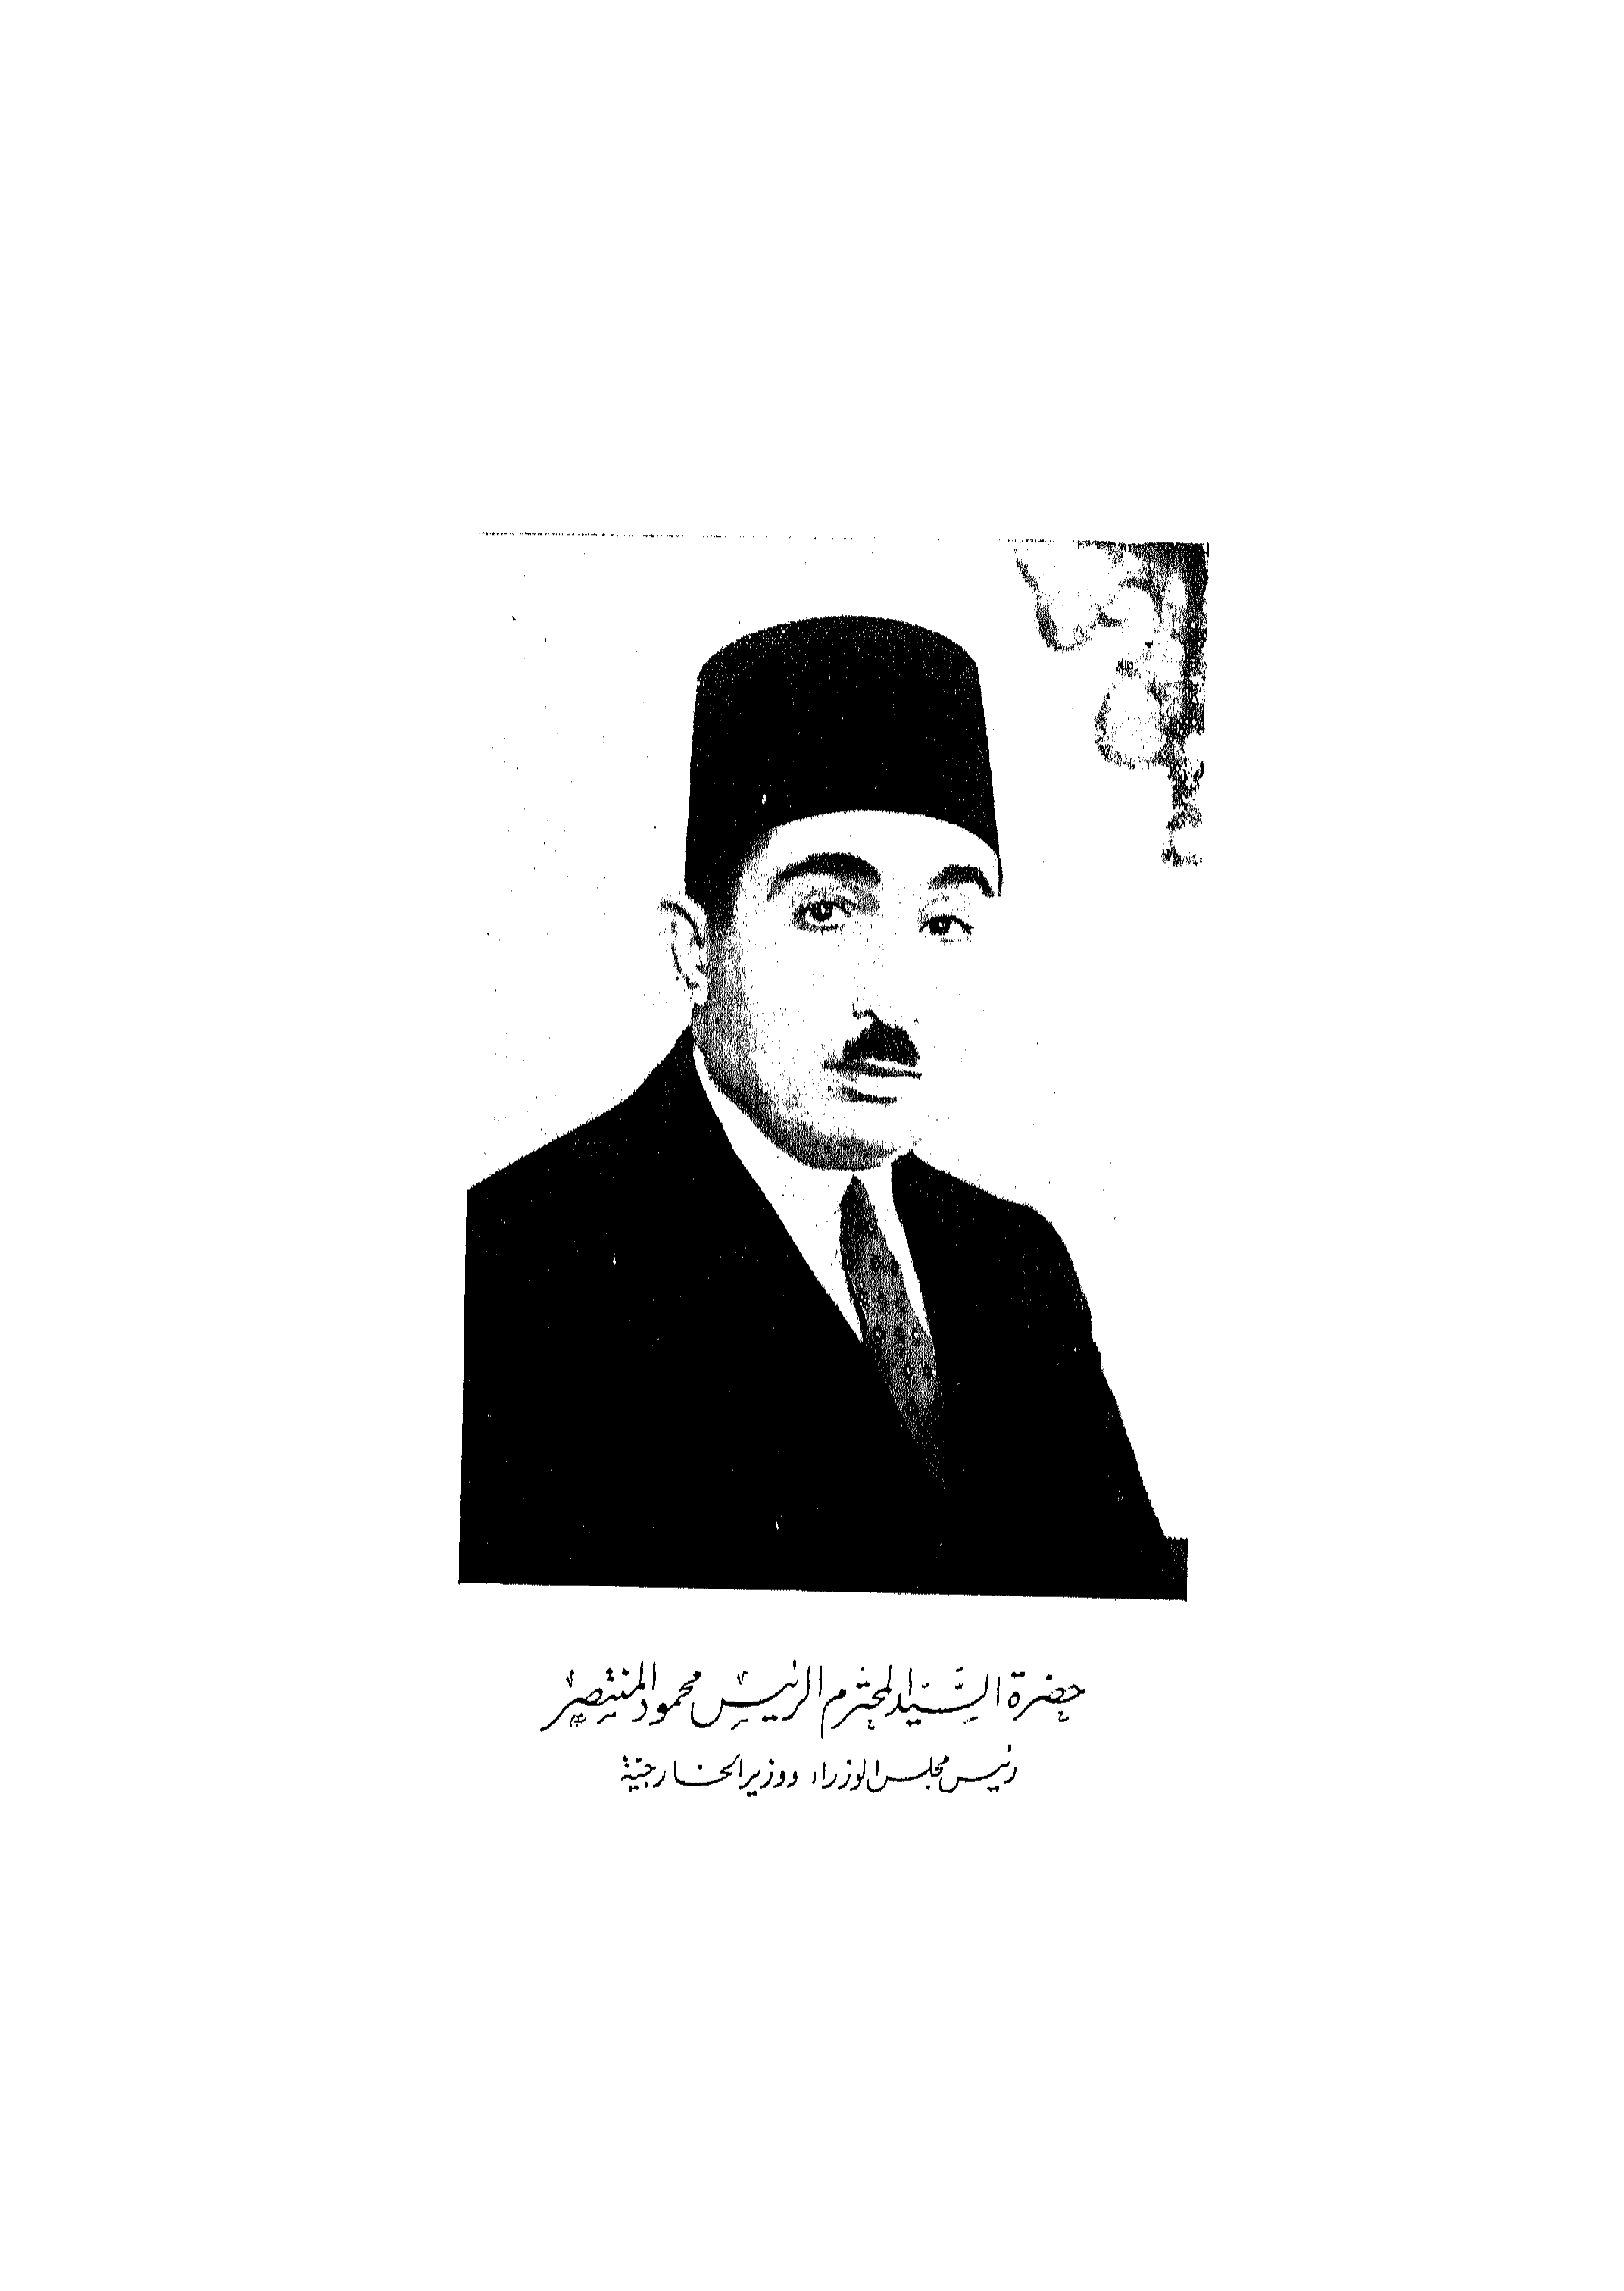 حضرة السيد المحترم الرئيس محمود المنتصر
رئيس مجلس الوزراء ووزير الخارجية